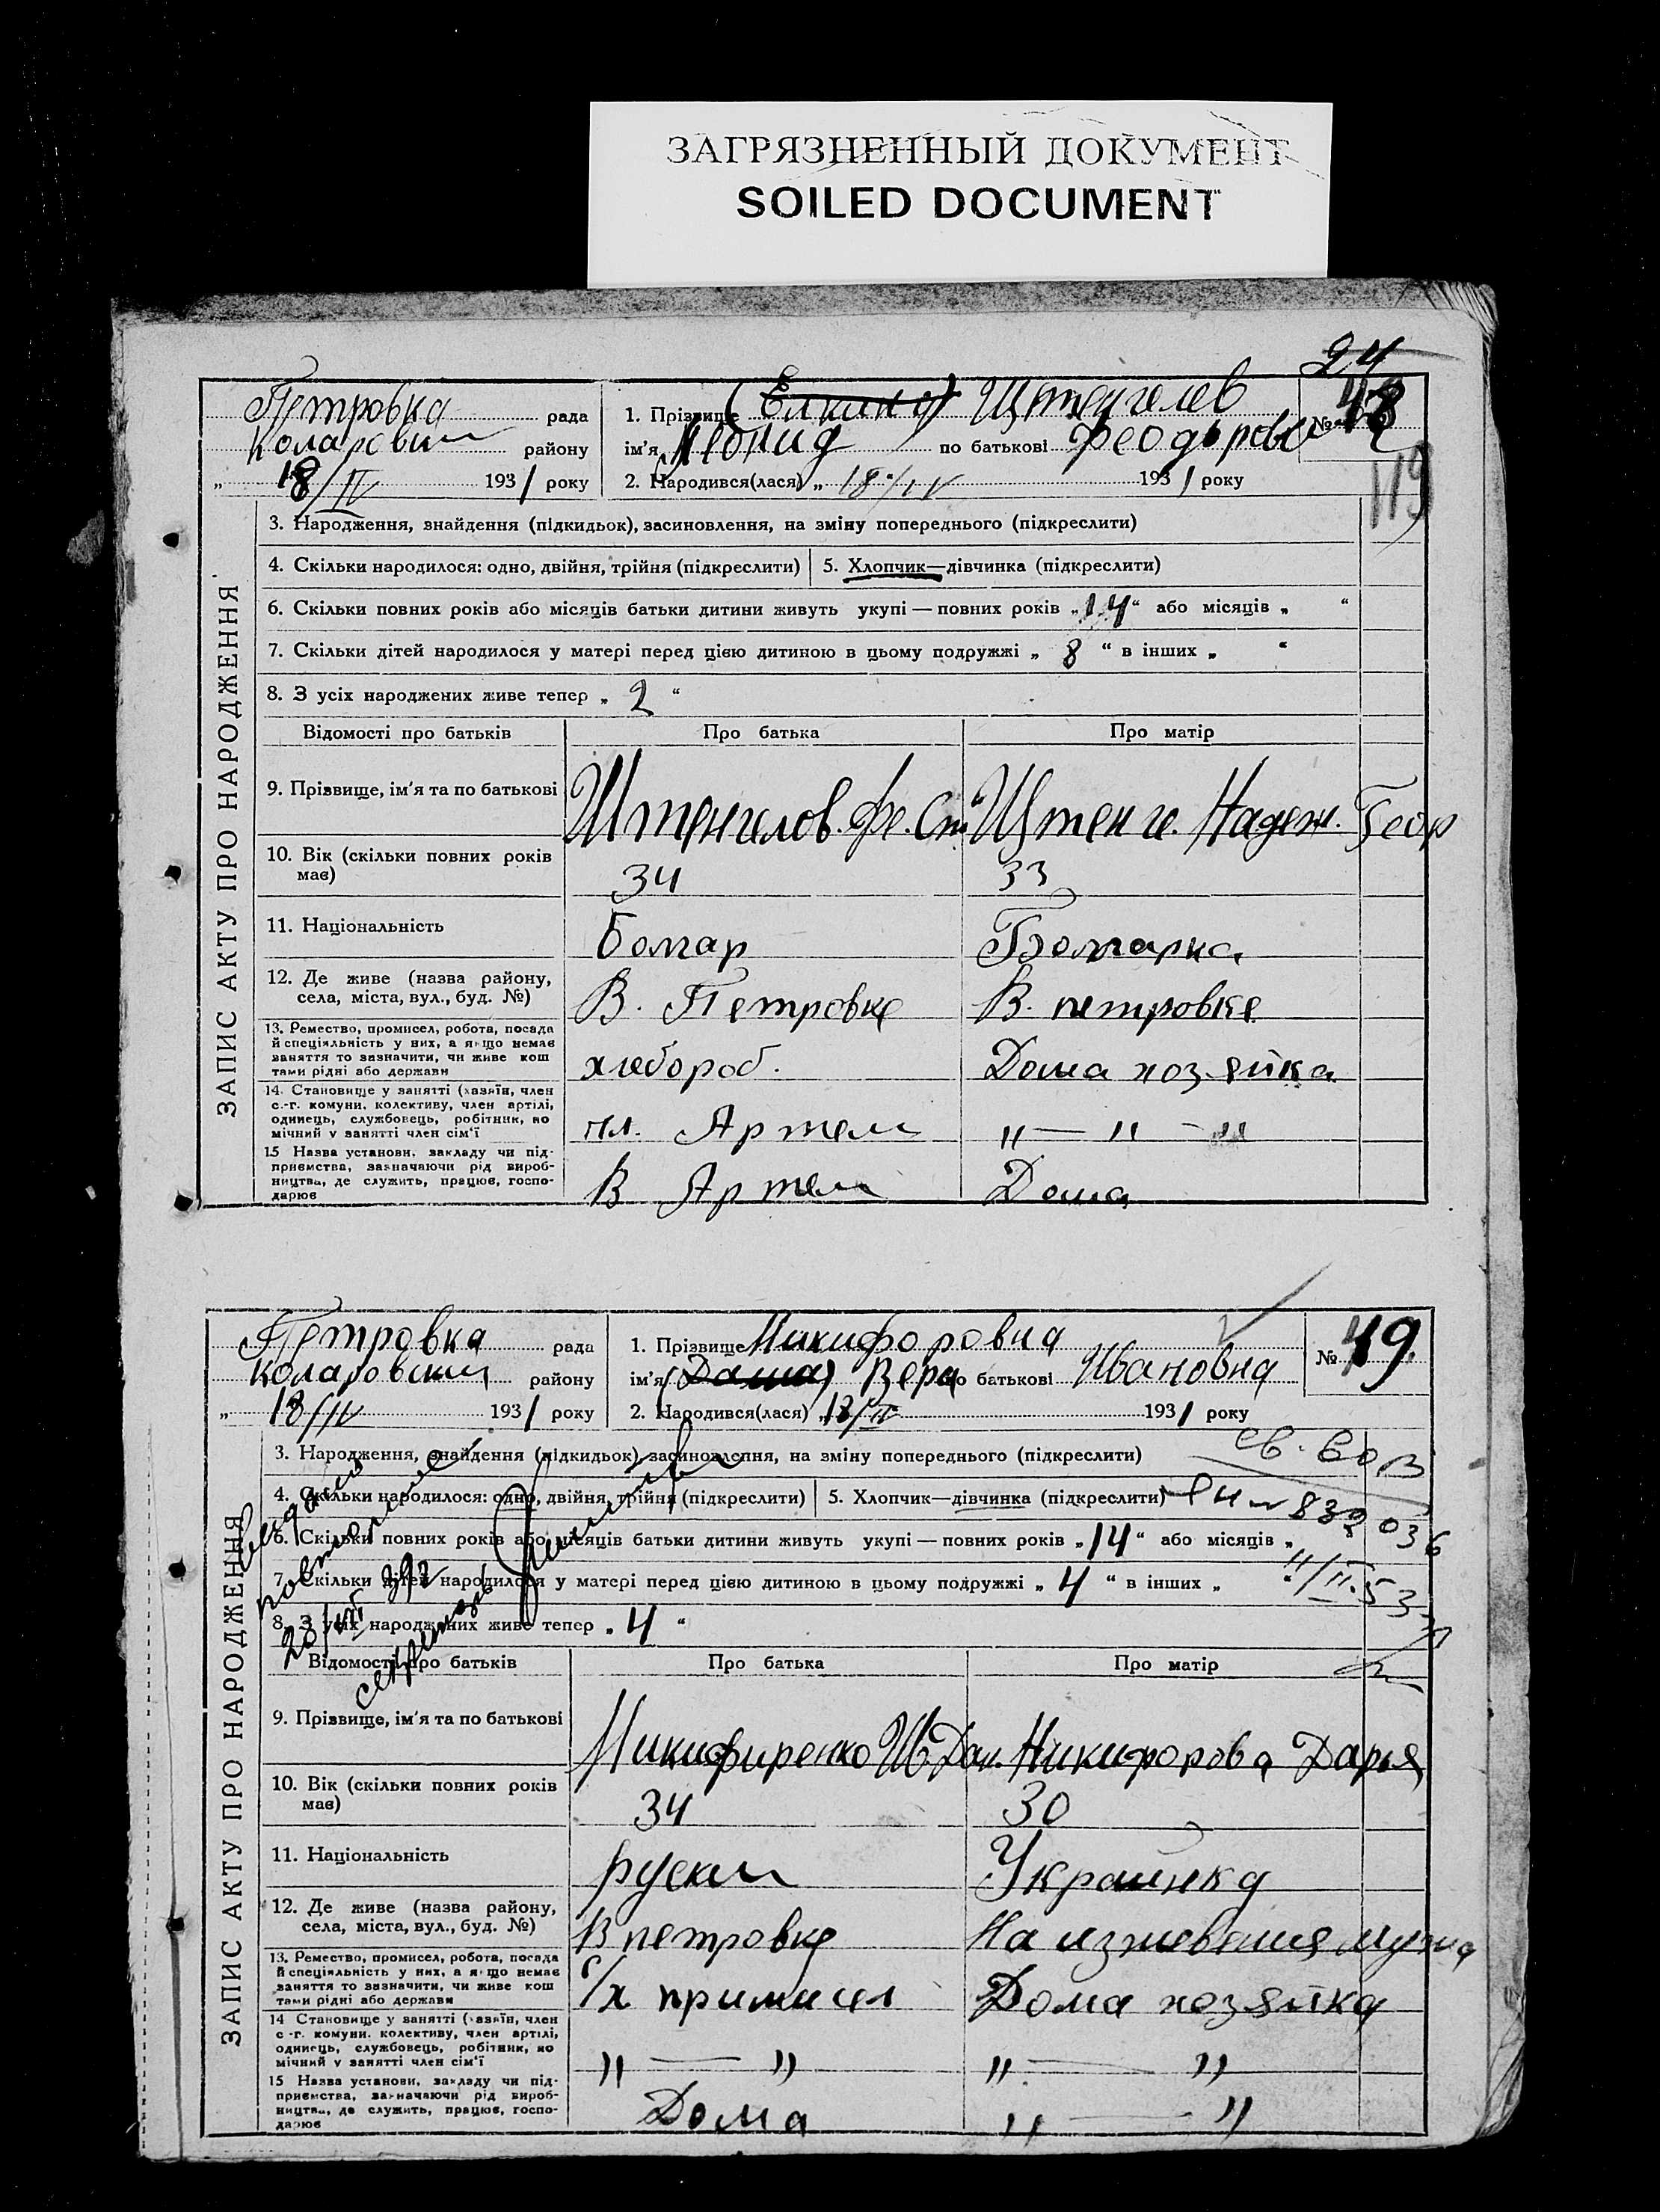 ЗАГРЯЗНЕННЫЙ ДОКУМЕНТ
SOILED DOCUMENT
24
Петровка рада
Коларовский району
18/IV 1931 року
1. Прізвище (Елкина) Щтенгелев
ім'я Леонид по батькові Феодорови
2. Народився(лася) „ 18/IV 1931 року
№ 48
119
ЗАПИС АКТУ ПРО НАРОДЖЕННЯ
3. Народження, знайдення (підкидьок), засиновлення, на зміну попереднього (підкреслити)
4. Скільки народилося: одно, двійня, трійня (підкреслити) 5. Хлопчик—дівчинка (підкреслити)
6. Скільки повних років або місяців батьки дитини живуть укупі — повних років „14“ або місяців „ “
7. Скільки дітей народилося у матері перед цією дитиною в цьому подружжі „ 8 “ в інших „ “
8. З усіх народжених живе тепер „ 2 “
Відомості про батьків Про батька Про матір
9. Прізвище, ім'я та по батькові Штенгелов. Фе. Ст. Щтенге. Надеж. Геор
10. Вік (скільки повних років має) 34 33
11. Національність Болгар Болгарка
12. Де живе (назва району, села, міста, вул., буд. №) В. Петровке В. петровке
13. Ремество, промисел, робота, посада й спеціяльність у них, а якщо немає заняття то зазначити, чи живе коштами рідні або держави хлебороб. Дома хозяйка
14. Становище у занятті (хазяїн, член с.-г. комуни, колективу, член артілі, одинець, службовець, робітник, помічний у занятті член сім'ї чл. Артели „ — „ — „
15 Назва установи, закладу чи підприємства, зазначаючи рід виробництва, де служить, працює, господарює В Артели Дома
Петровка рада
Коларовский району
„ 18/IV 1931 року
1. Прізвище Никифоровна
ім'я (Даша) Вера по батькові Ивановна
2. Народився(лася) „18/IV 1931 року
№ 49.
ЗАПИС АКТУ ПРО НАРОДЖЕННЯ
3. Народження, знайдення (підкидьок), засиновлення, на зміну попереднього (підкреслити)
4. Скільки народилося: одно, двійня, трійня (підкреслити) 5. Хлопчик—дівчинка (підкреслити)
6. Скільки повних років або місяців батьки дитини живуть укупі — повних років „14“ або місяців „
7. Скільки дітей народилося у матері перед цією дитиною в цьому подружжі „ 4 “ в інших „
8. З усіх народжених живе тепер „ 4 “
повторные
секретарь
Відомості про батьків Про батька Про матір
9. Прізвище, ім'я та по батькові Никифиренко Ив Дан. Никифорова Дарья
10. Вік (скільки повних років має) 34 30
11. Національність руский Украинка
12. Де живе (назва району, села, міста, вул., буд. №) В петровке На изжевения мужа
13. Ремество, промисел, робота, посада й спеціяльність у них, а якщо немає заняття то зазначити, чи живе коштами рідні або держави С/х примисел Дома хозяйка
14 Становище у занятті (хазяїн, член с-г. комуни, колективу, член артілі, одинець, службовець, робітник, помічний у занятті член сім'ї „ — „ „ — „
15 Назва установи, закладу чи підприємства, зазначаючи рід виробництва, де служить, працює, господарює Дома „ — „